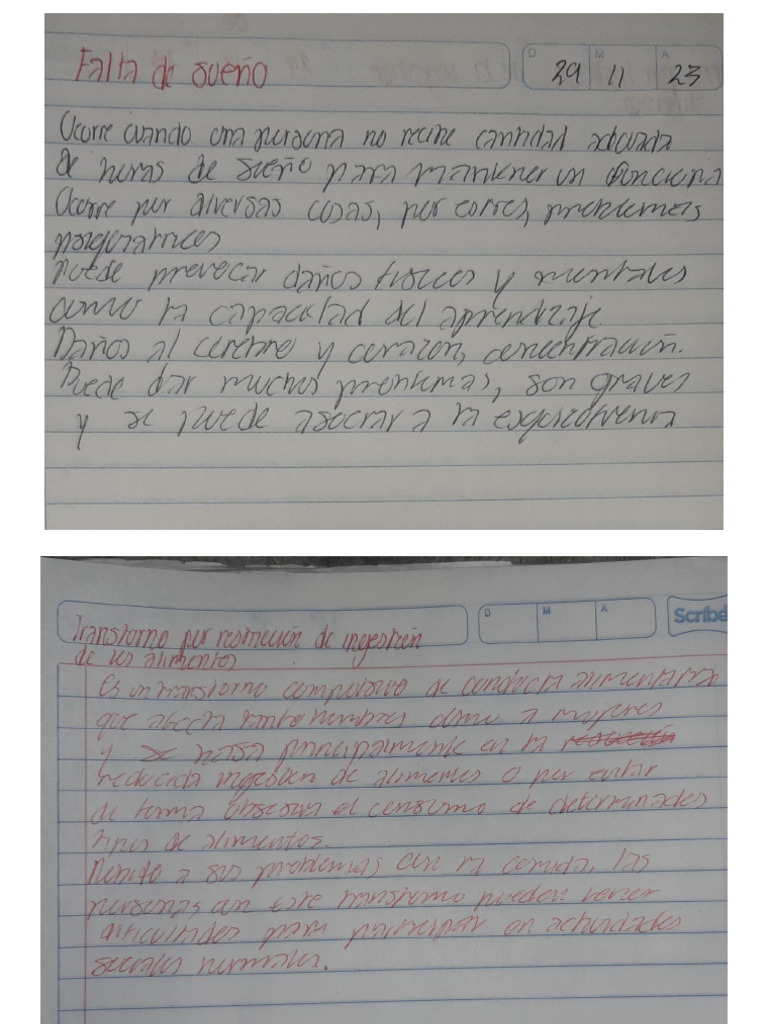 Falta de sueño
D M A
29 11 23
Ocurre cuando una persona no recibe cantidad adecuada
de horas de sueño para mantener un funciona
Ocurre por diversas cosas, por estres, problemas
psiquiatricos
Puede provocar daños fisicos y mentales
como la capacidad del aprendizaje
Daños al cerebro y corazon, concentración.
Puede dar muchos problemas, son graves
y se puede asociar a la esquizofrenia
Transtorno por restricción de ingestión
de los alimentos
D M A
Scribe
Es un transtorno compulsivo de conducta alimentaria
que afecta tanto hombres como a mujeres
y se basa principalmente en la
reducida ingestión de alimentos o por evitar
de forma obsesiva el consumo de determinados
tipos de alimentos.
Debido a sus problemas con la comida, las
personas con este transtorno pueden tener
dificultades para participar en actividades
sociales normales.